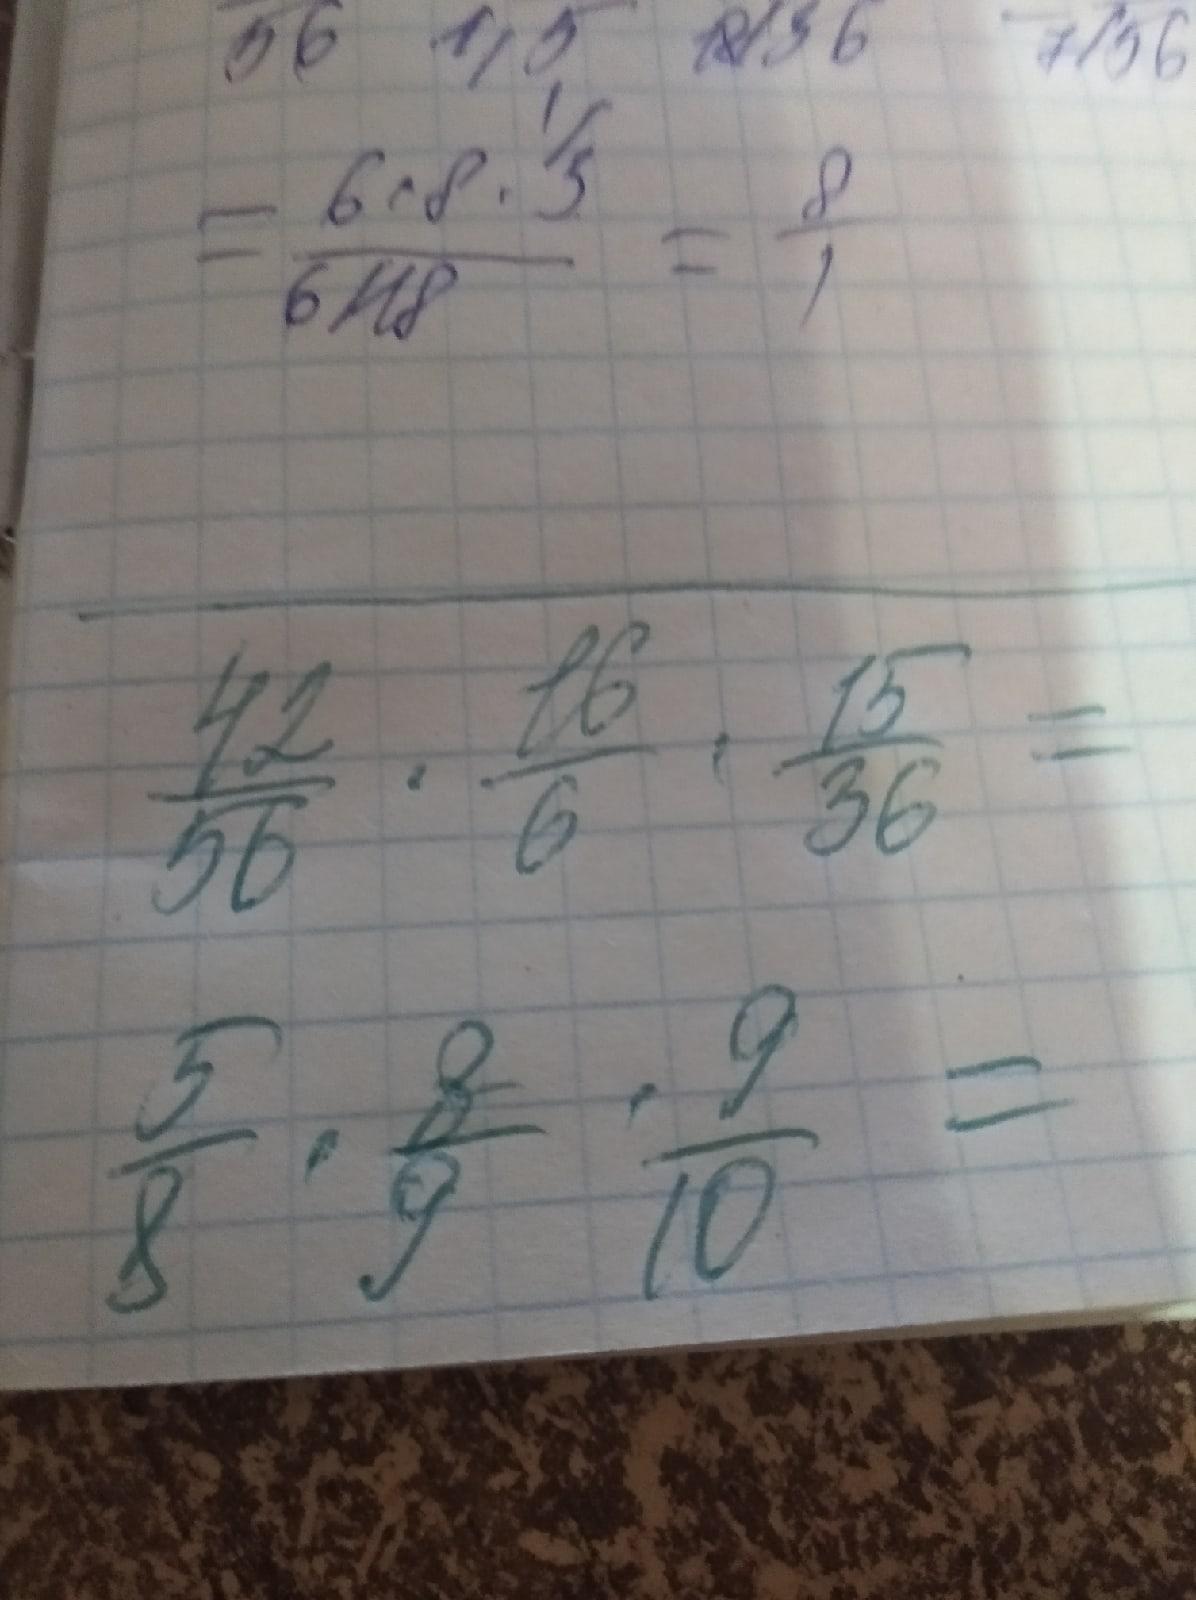 56 1,5 36 56
= 6·8·3 = 8/1
42/56 · 16/6 · 15/36 =
5/8 · 8/9 · 9/10 =